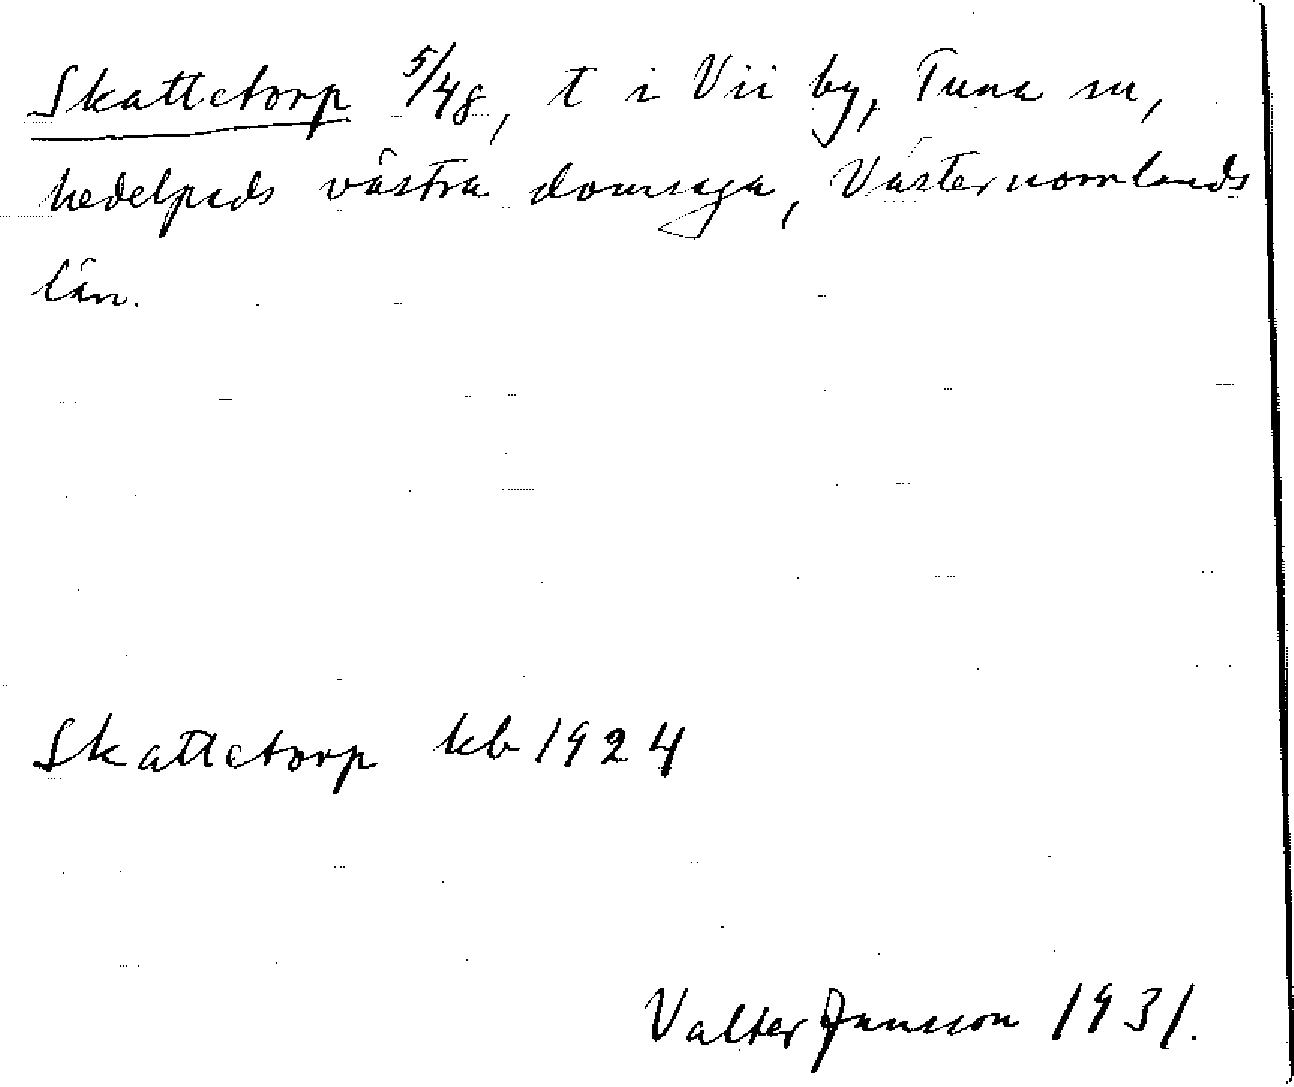 Skattetorp 5/48, t i Vii by, Tuna sn,
Medelpads västra domsaga, Västernorrlands
län.
Skattetorp kb 1924
Valter Jansson 1931.